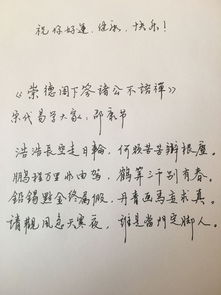 祝你好運，健康，快樂！
《崇德閣下答諸公不語禪》
宋代易学大家，邵康节
浩浩長空走日輪，何煩苦苦辯根塵。
鵬程万里非由駕，鶴筭三千別有春。
鉛錫點金終属假，丹青画馬豈成真。
請觀風急天寒夜，誰是當門定腳人。